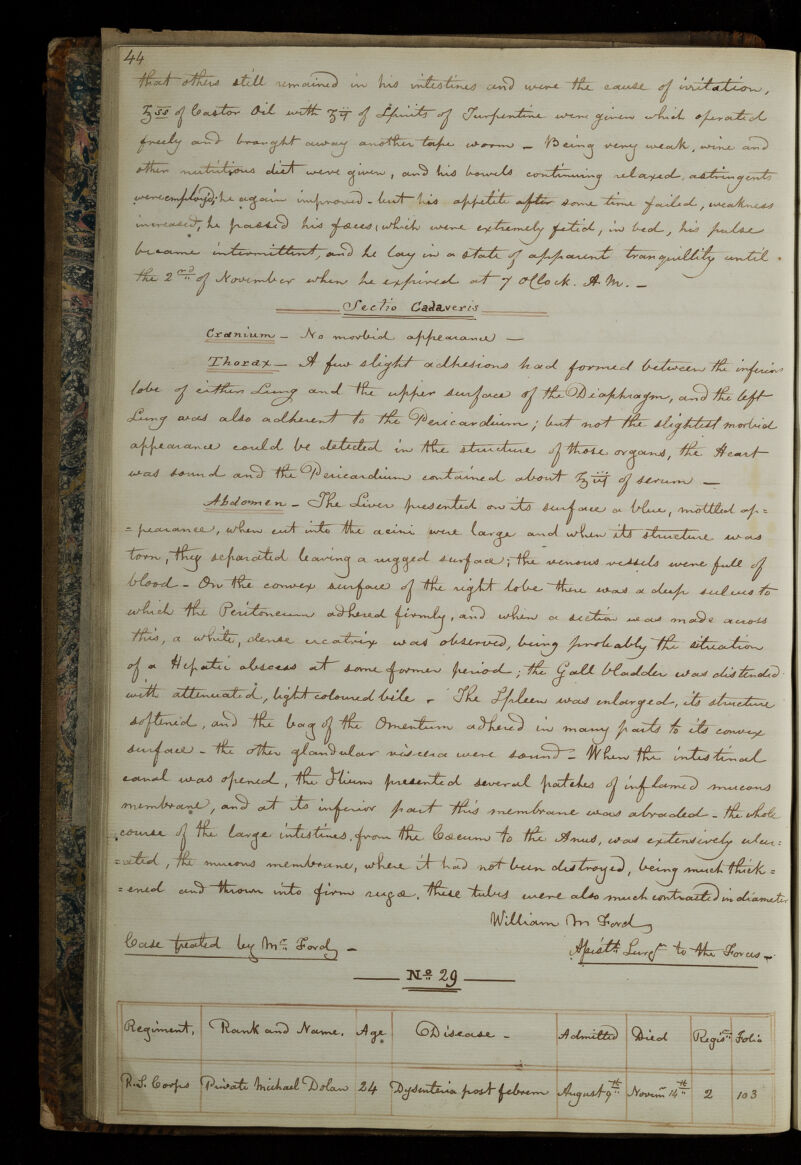 44
that others still remained in his intestines and were the cause of irritation,
℥ss of Castor Oil with ʒij of Spirits of Turpentine were given which operated
freely and brought away another tape worm – Being very weak, wine and
other nutritious diet were given, and his bowels continuing relaxed, astringents
were employed; he again improved – but his appetite after some time failed, weakness
increased, he passed his fæces, which were extremely fetid, in bed, his pulse
became intermittent, and he lay in a state of apparent tranquillity until
the 2nd of November when he expired at 7 oClock. A.M. –
Sectio Cadaveris
Cranium – No morbid appearance –
Thorax – A few slight adhesions had formed between the inferior
lobe of either Lung and the upper surface of the Diaphragm, and the left
Lung was also adherent to the Pericardium; but not the slightest morbid
appearance could be detected in the structure of those organs, the Heart
was sound and the Pericardium contained about ℥iij of serum –
Abdomen – The Liver presented on its surface a blue, mottled ap=
=pearance, when cut into the acini were large and when its structure was
torn, they separated leaving a rugged surface; the venous vessels were full of
blood – On the convex surface of the right lobe there was a deep sulcus to
which the Peritoneum adhered firmly, and when a section was made across
this, a white, dense cicatrix was observed, being probably the situation
of a Hepatic abscess at some former period; the Gall bladder was distended
with attenuated, light coloured bile – The Spleen was enlarged, its structure
softened, and the bag of the Omentum adhered in many parts to its convex
surface – the other glandular viscera were sound – When the intestinal
canal was opened, the Ilium presented several patches of inflamed mucous
membrane, and at its inferior part this membrane was abraded – the whole
course of the large intestines, from the Cæcum to the Anus, was extensively ulcer=
=ated, the mucous membrane, where it had not been destroyed, being much thick=
=ened and thrown into firm rugæ, these tubes were also much contracted in diameter
William M Ford
Case treated by Mr. Ford –
Assistt. Surgn. to the Forces –
No. 29
Regiment, Rank and Name. Age Disease – Admitted Died Regisr. Folio
R.S. Corps Private Michael Dolan 24 Dysenteria post febrem August 9th Novem 14th 2 103